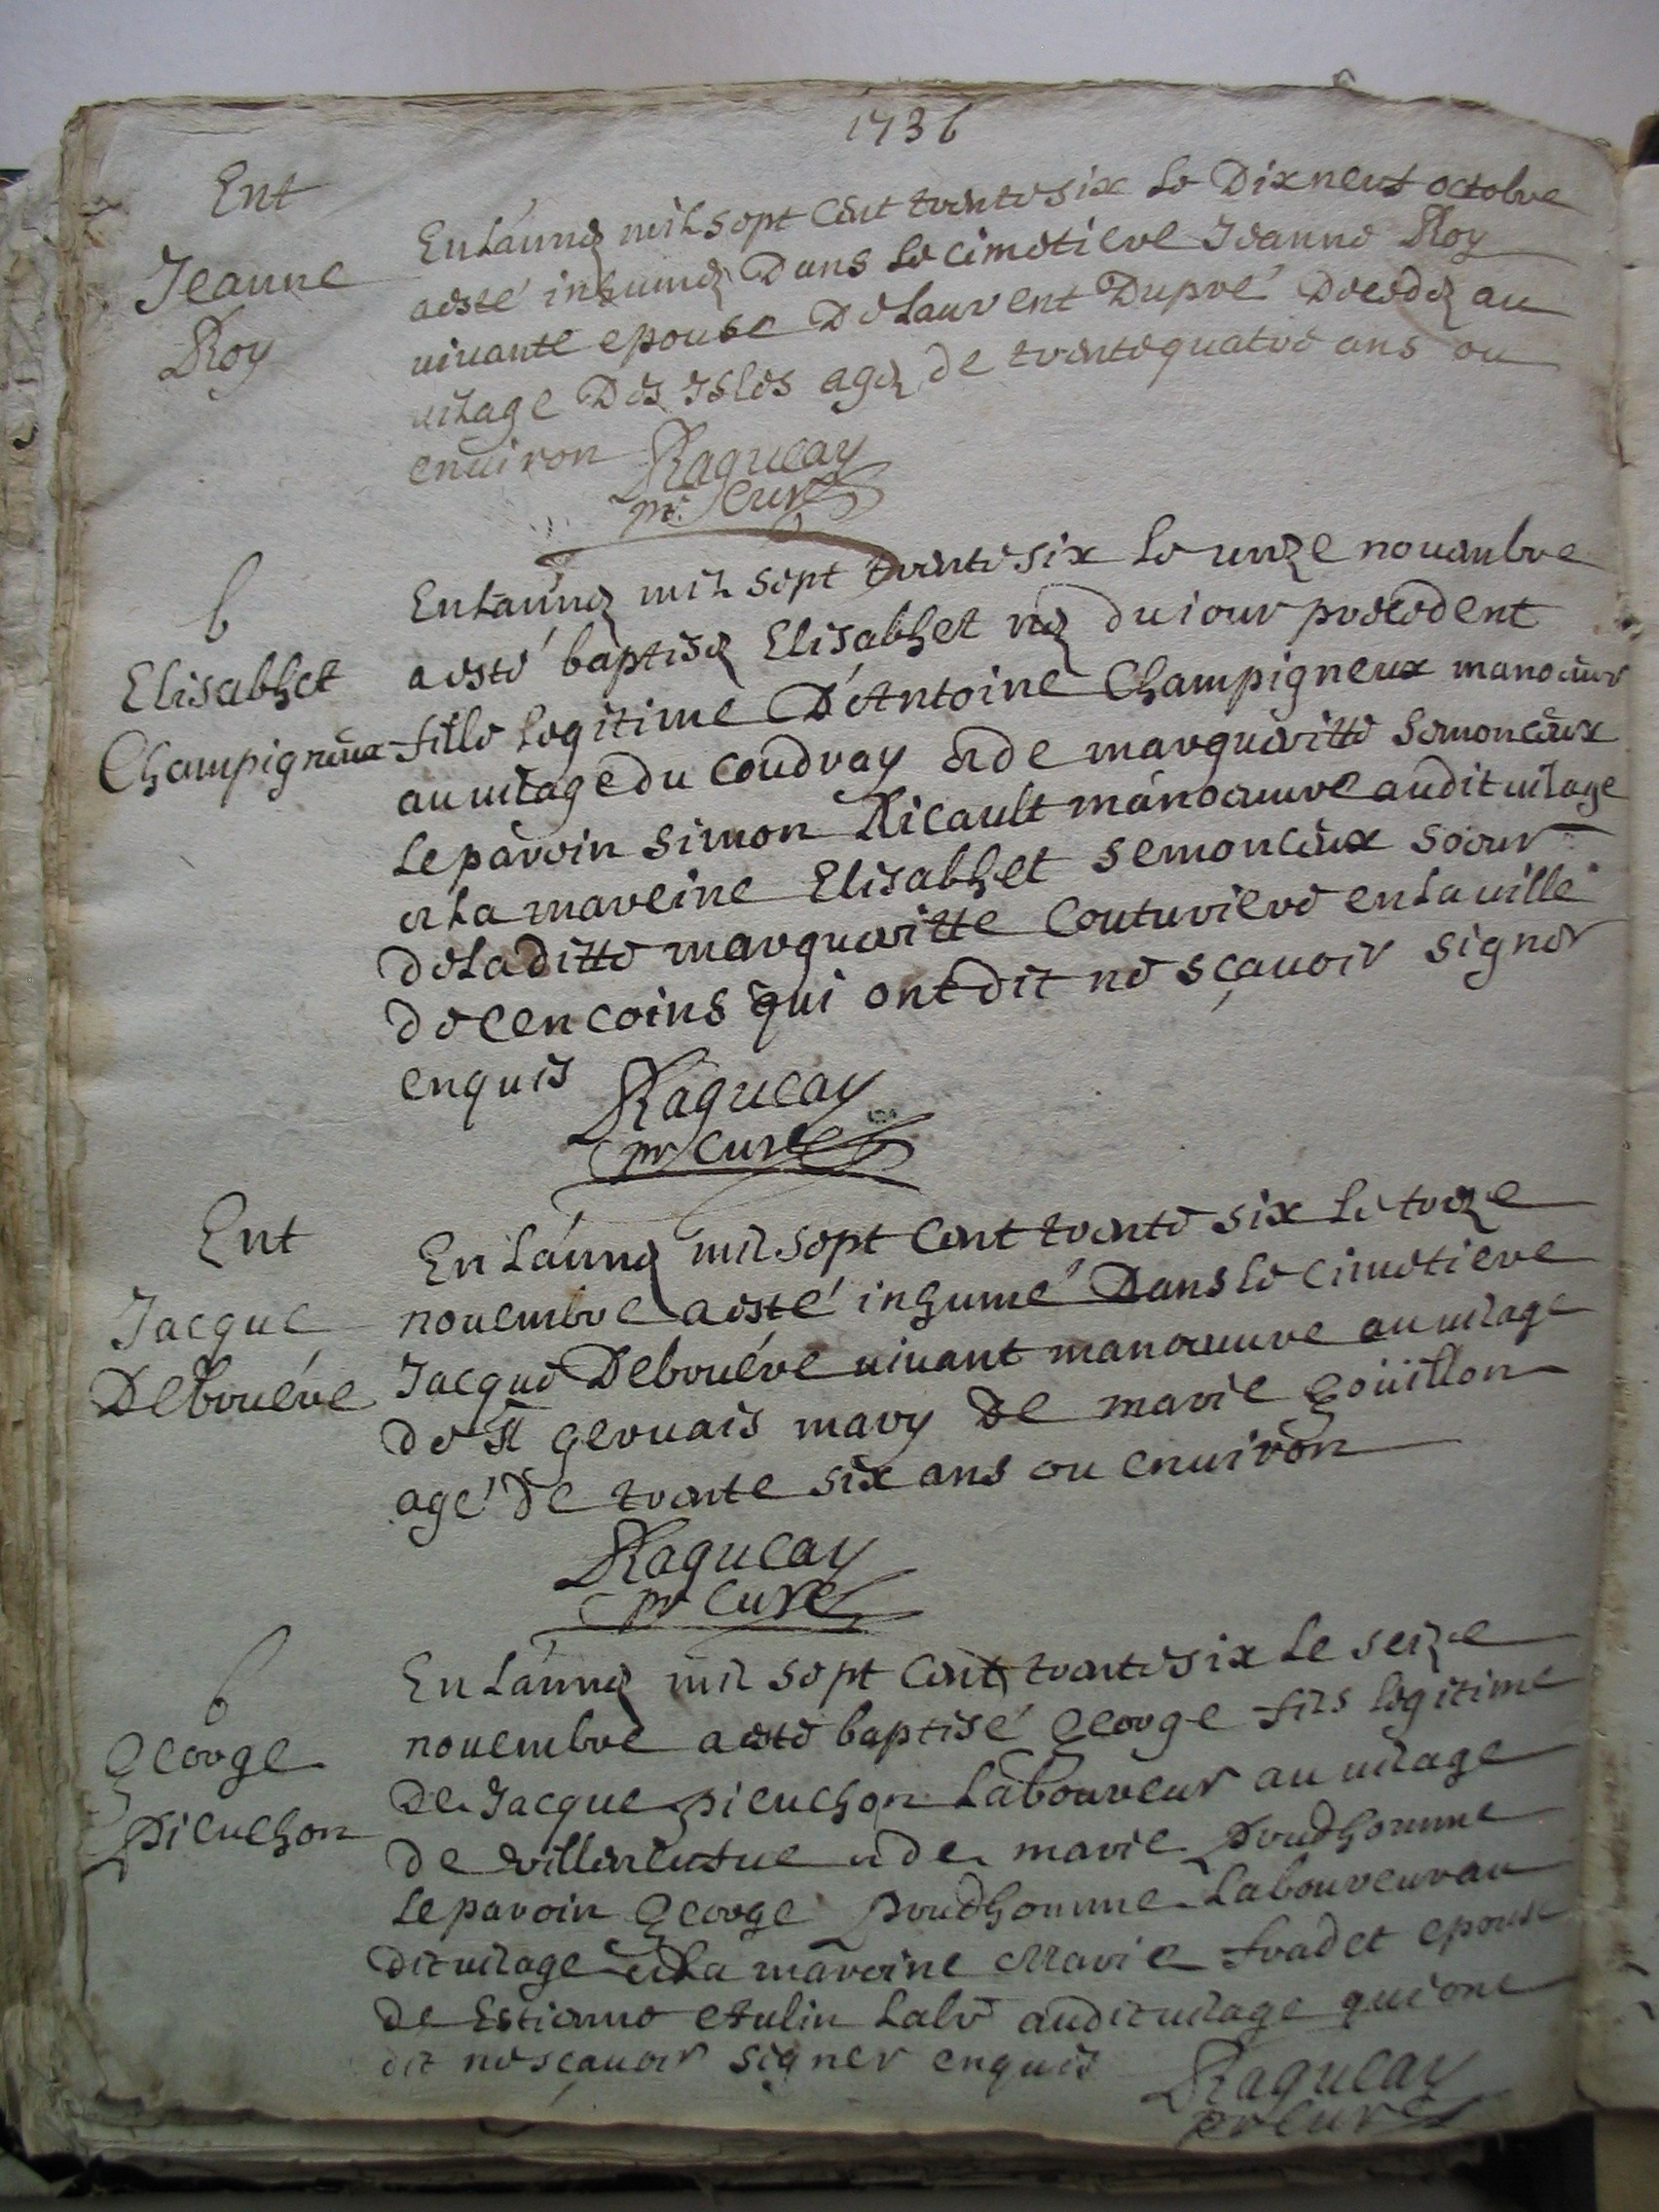 1736
Ent
Jeanne
Roy
En Lánnéé mil sept cent trente six le Dixneuf octobre
a esté inhuméé Dans le cimetiere Jeanne Roy
uiuante epouse De Laurent Dupré Decedéé au
uilage Des Isles agéé de trente quatre ans ou
enuiron Ragueay
pr. Curé
b
Elisabhet
Champigneux
En Lannéé mil sept trente six le unze nouembre
a esté baptiséé Elisabhet néé du iour precedent
fille legitime D'Antoine Champigneux manoeuvr
au uilage du coudray et de margueritte Semonceux
Le paroin simon Ricault manoeuure audit uilage
et La mareine Elisabhet semonceux soeur
de Laditte margueritte Couturiere en La uille
de cencoins qui ont dit ne sçauoir signer
enquis Ragueay
pr Curé
Ent
Jacque
Debruére
En Lánnéé mil sept cent trente six le treze
nouembre a esté inhumé Dans le cimetiere
Jacque Debruére uiuant manoeuure au uilage
de St geruais mary De marie goüillon
agé De trente six ans ou enuiron
Ragueay
pr Curé
b
george
pieuchon
En Lánnéé mil sept cent trente six Le seize
nouembre a esté baptisé george fils legitime
De Jacque pieuchon Laboureur au uilage
De et de marie prudhomme
Le paroin george prudhomme Laboureur au
dit uilage et La maroine Marie fradet epouse
De Estienne audit uilage qui ont
dit ne sçauoir signer enquis Ragueay
pr Curé